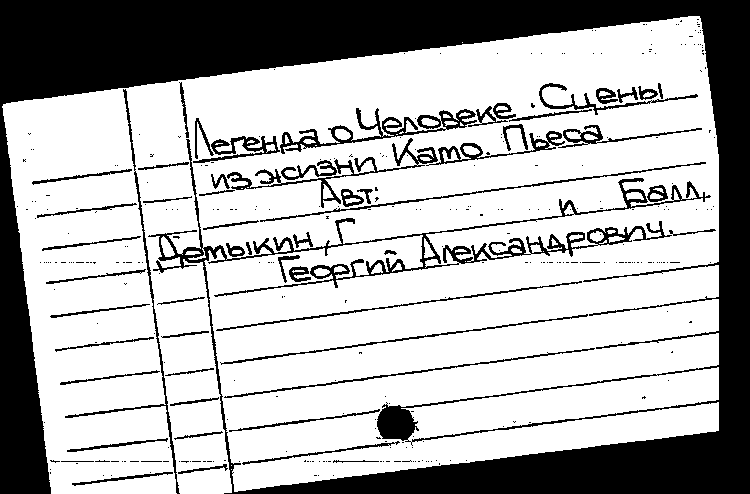 Легенда о Человеке. Сцены
из жизни Като. Пьеса.
Авт:
Детыкин, Г и Балл,
Георгий Александрович.